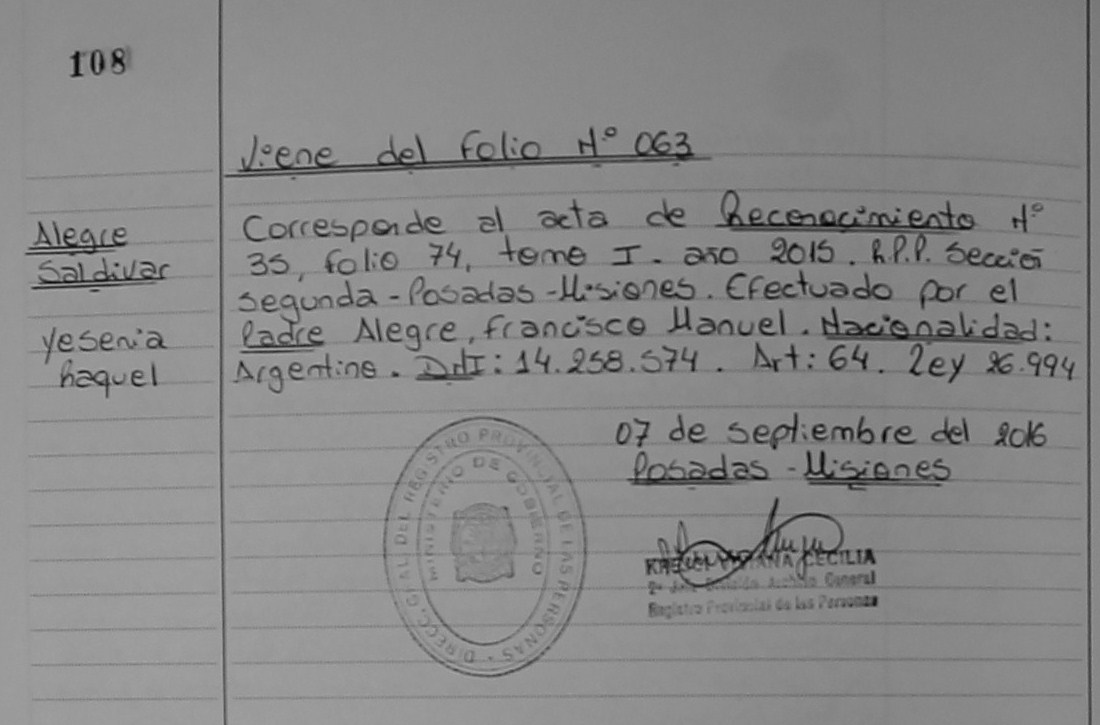 108
Viene del folio N° 063
Alegre
Saldivar
Yesenia
Raquel
Corresponde al acta de Reconocimiento N°
35, folio 74, tomo I. año 2015. R.P.P. Sección
Segunda - Posadas - Misiones. Efectuado por el
Padre Alegre, Francisco Manuel. Nacionalidad:
Argentino. DNI: 14.258.574. Art: 64. Ley 26.994
07 de septiembre del 2016
Posadas - Misiones
DIRECC. GRAL. DEL REGISTRO PROVINCIAL DE LAS PERSONAS
MINISTERIO DE GOBIERNO
CECILIA
2° Jefe División Archivo General
Registro Provincial de las Personas